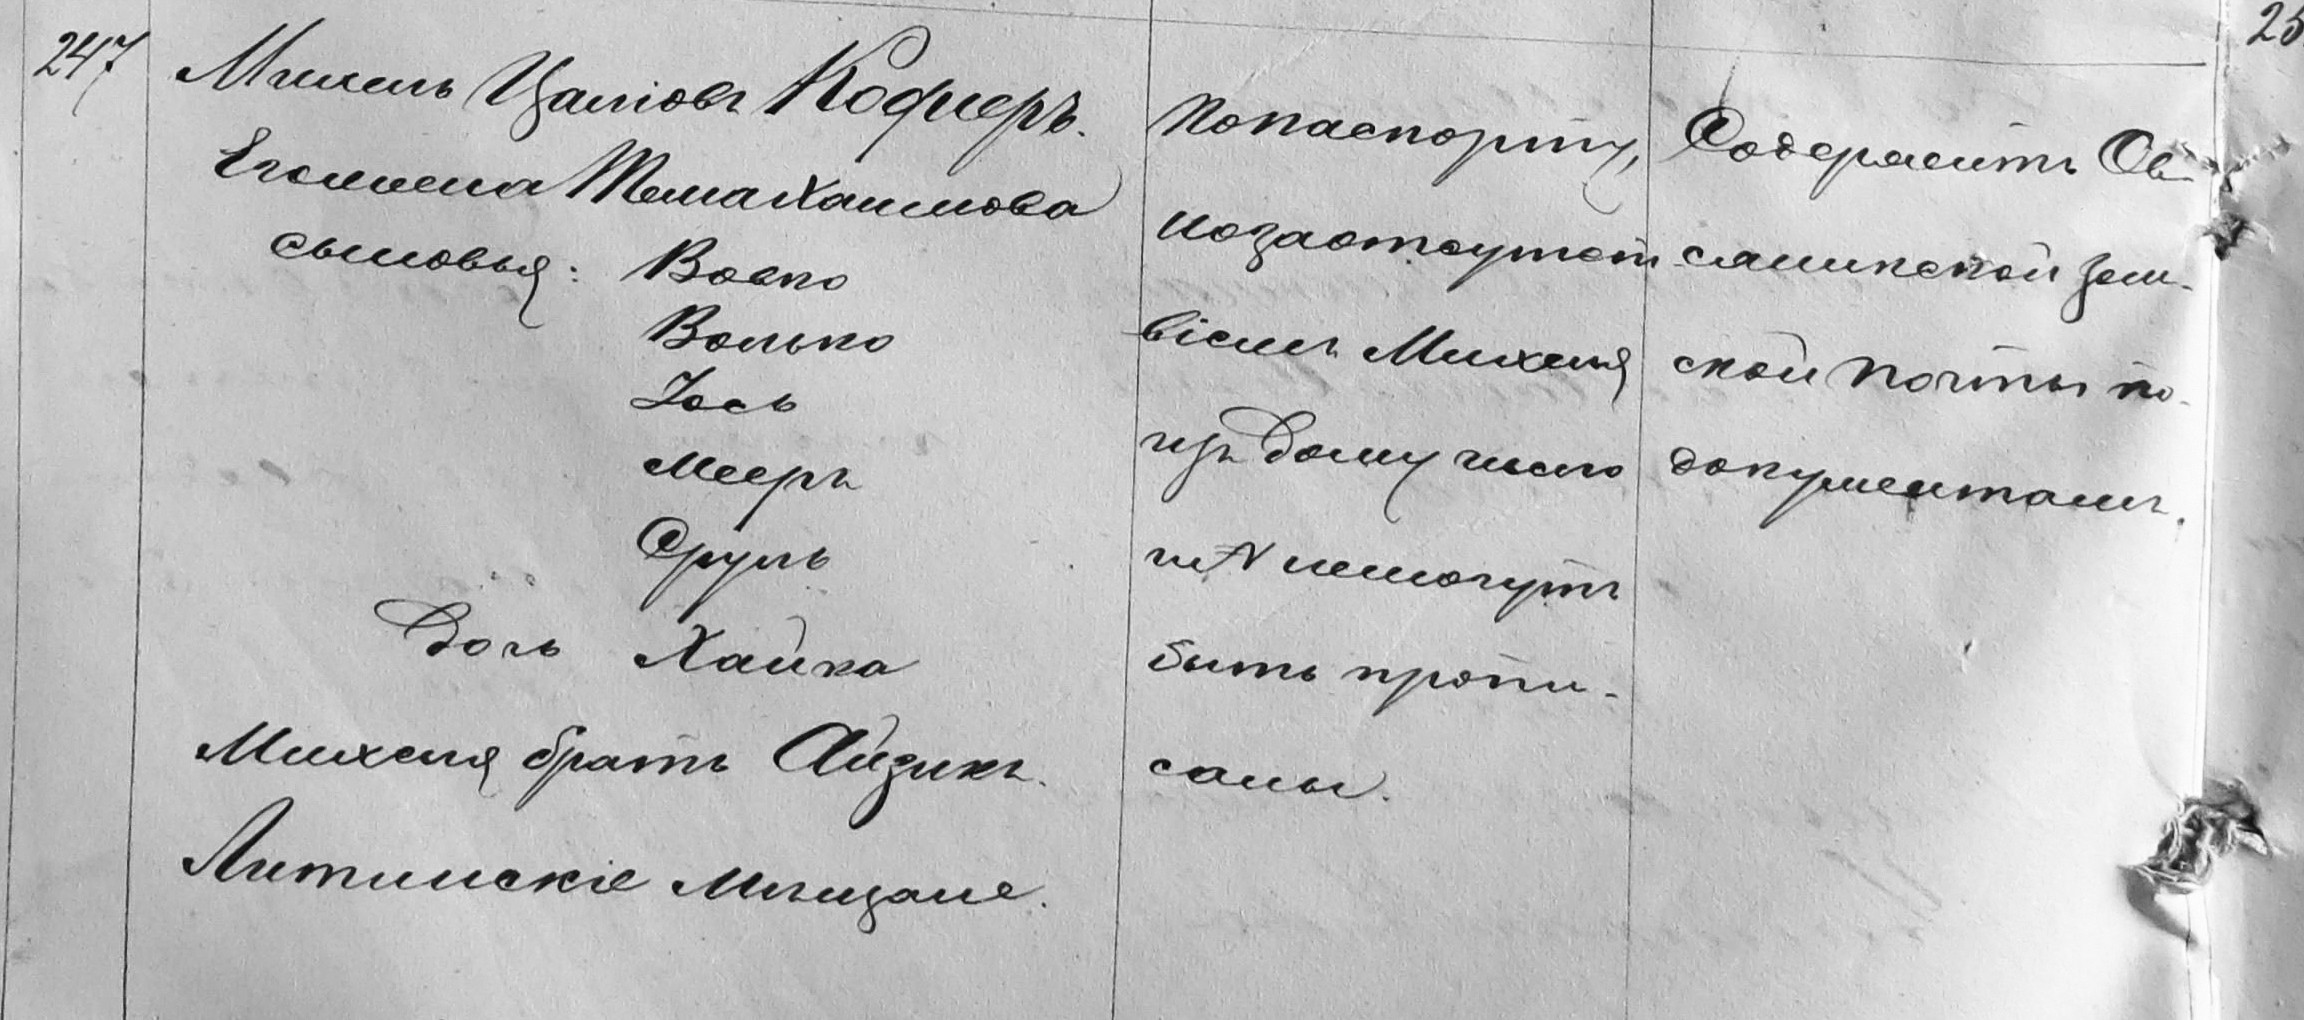 247
Михель Цалiовъ Кофнеръ.
Его жена Тема Хаимова
сыновья: Вовко
Волько
Iось
Мееръ
Сруль
Дочь Хайка
Михеля братъ Айзикъ.
Литинскiе мѣщане.
По паспорту,
но за отсутст
вiемъ Михеля
изъ дому число
и № не могутъ
быть пропи-
саны.
Содержитъ Ов-
сяникской зем-
ской почты по
документамъ.
25